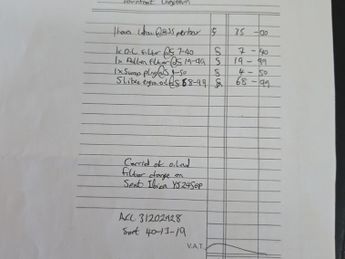 1 hour labour @ 35 per hour £ 35 - 00
1x Oil filter @ £ 7-40 £ 7 - 40
1x Pollen filter @ £ 19-99 £ 19 - 99
1x Sump plug @ 4-50 £ 4 - 50
5 litres engine oil @ £ 68-99 £ 68 - 99
Carried out oil and
filter change on
Seat Ibiza
Acc 31202928
Sort 40-13-19
V.A.T.